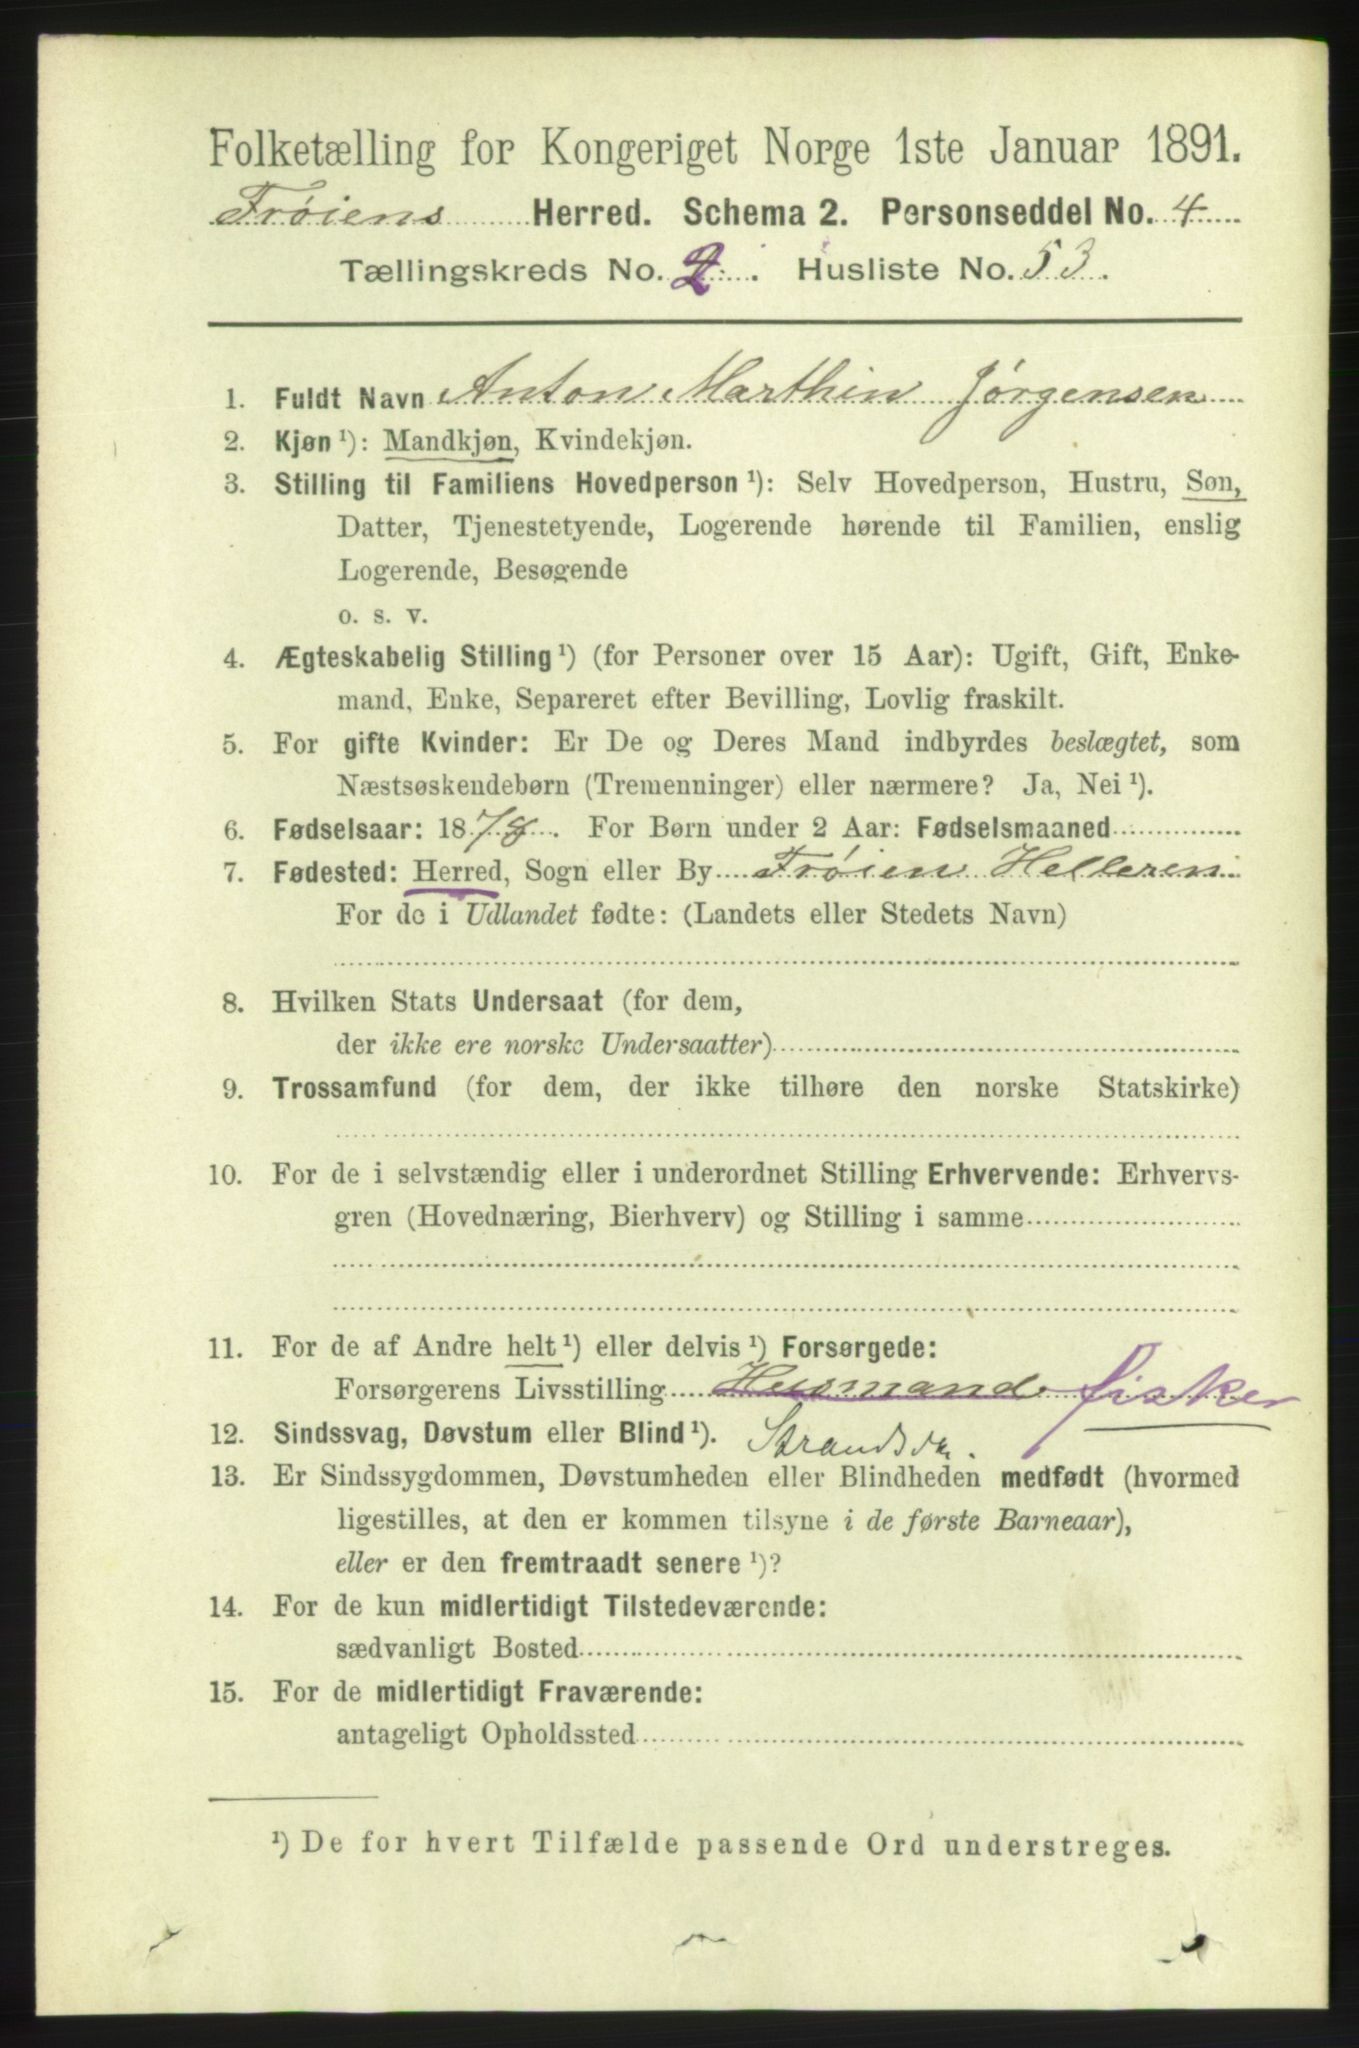 Folketælling for Kongeriget Norge 1ste Januar 1891.
Frøiens Herred. Schema 2. Personseddel No. 4
Tællingskreds No. 2. Husliste No. 53.
1. Fuldt Navn Anton Marthin Jørgensen
2. Kjøn ¹): Mandkjøn, Kvindekjøn.
3. Stilling til Familiens Hovedperson ¹): Selv Hovedperson, Hustru, Søn,
Datter, Tjenestetyende, Logerende hørende til Familien, enslig
Logerende, Besøgende
o. s. v.
4. Ægteskabelig Stilling ¹) (for Personer over 15 Aar): Ugift, Gift, Enke-
mand, Enke, Separeret efter Bevilling, Lovlig fraskilt.
5. For gifte Kvinder: Er De og Deres Mand indbyrdes beslægtet, som
Næstsøskendebørn (Tremenninger) eller nærmere? Ja, Nei ¹).
6. Fødselsaar: 1878. For Børn under 2 Aar: Fødselsmaaned
7. Fødested: Herred, Sogn eller By Frøien Helleren
For de i Udlandet fødte: (Landets eller Stedets Navn)
8. Hvilken Stats Undersaat (for dem,
der ikke ere norske Undersaatter)
9. Trossamfund (for dem, der ikke tilhøre den norske Statskirke)
10. For de i selvstændig eller i underordnet Stilling Erhvervende: Erhvervs-
gren (Hovednæring, Bierhverv) og Stilling i samme
11. For de af Andre helt ¹) eller delvis ¹) Forsørgede:
Forsørgerens Livsstilling Husmand fisker
12. Sindssvag, Døvstum eller Blind ¹).
13. Er Sindssygdommen, Døvstumheden eller Blindheden medfødt (hvormed
ligestilles, at den er kommen tilsyne i de første Barneaar),
eller er den fremtraadt senere ¹)?
14. For de kun midlertidigt Tilstedeværende:
sædvanligt Bosted
15. For de midlertidigt Fraværende:
antageligt Opholdssted
¹) De for hvert Tilfælde passende Ord understreges.